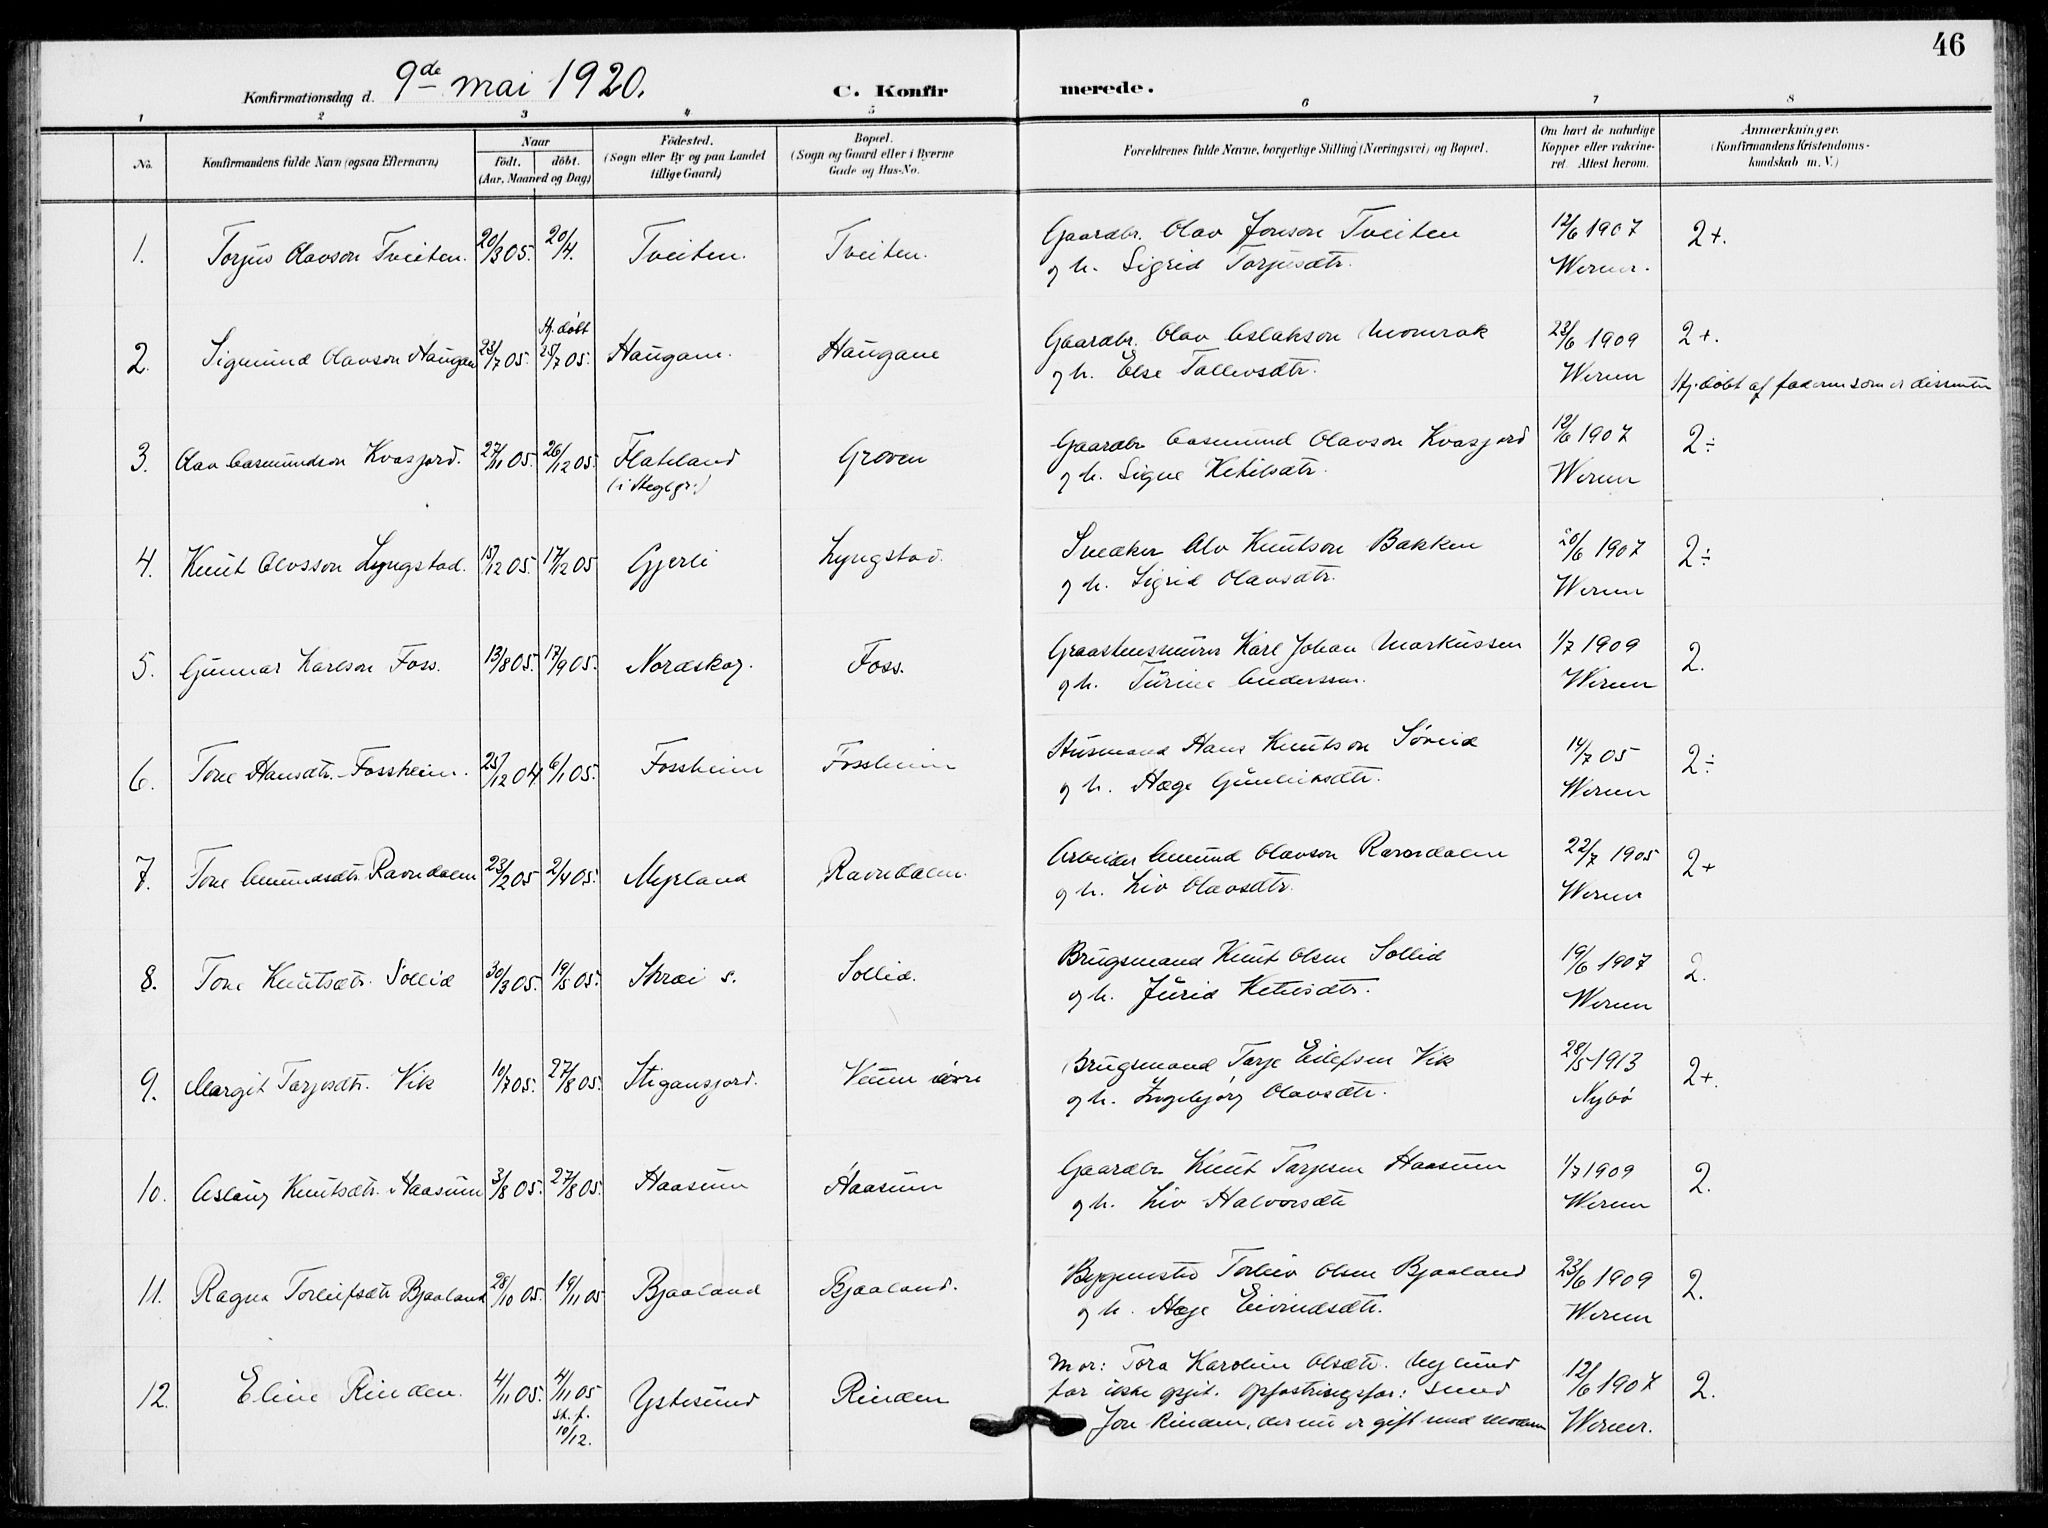 46
Konfirmationsdag d. 9de mai 1920. C. Konfirmerede.
1 2 3 4 5 6 7 8
No. Konfirmandens fulde Navn (ogsaa Efternavn) Naar født. døbt. (Aar, Maaned og Dag) Fødested. (Sogn eller By og paa Landet tillige Gaard) Bopæl. (Sogn og Gaard eller i Byerne Gade og Hus-No. Forældrenes fulde Navne, borgerlige Stilling (Næringsvei) og Bopæl. Om havt de naturlige Kopper eller vakcineret. Attest herom. Anmærkninger. (Konfirmandens Kristendomskundskab m. V.)
1. Torjus Olavson Tveiten. 20/3 05. 20/4. Tveiten. Tveiten. Gaardbr. Olav Jonson Tveiten 12/6 1907 2+.
og h. Sigrid Torjusdtr. Werner.
2. Sigmund Olavson Haugan 23/7 05. Hj. døbt 25/7 05. Haugane. Haugane Gaardbr. Olav Aslakson Momrak 23/6 1909 2+.
og h. Else Tallevsdtr. Werner Hj. døbt af faderen som er dissenter
3. Olav Aasmundson Kvasjord. 27/11 05. 26/12 05. Flateland Groven Gaardbr. Aasmund Olavson Kvasjord 12/6 1907 2÷
og h. Signe Ketilsdtr. Werner
4. Knut Alvsson Lyngstad. 15/12 05. 17/12 05 Gjerli Lyngstad. Snedker Alv Knutson Bakken 20/6 1907 2÷
og h. Sigrid Olavsdtr. Werner
5. Gunnar Karlson Foss. 13/8 05. 17/9 05. Nordskog. Foss. Graastensmurer Karl Johan Markussen 1/7 1909 2.
og h. Turine Anderssen. Werner
6. Tone Hansdtr. Fossheim. 25/12 04 6/1 05. Fossheim Fossheim Husmand Hans Knutson Søreid 14/7 05 2÷
og h. Hæge Gunleiksdtr. Werner
7. Tone Amundsdtr. Ravndalen 23/2 05 2/4 05. Myrland Ravndalen. Arbeider Amund Olavson Ravndalen 22/7 1905 2+
og h. Liv Olavsdtr. Werner
8. Tone Knutsdtr. Sollid 30/3 05. 19/5 05. Skrei s. Sollid. Brugsmand Knut Olsen Sollid 19/6 1907 2.
og h. Jurid Ketilsdtr. Werner
9. Margit Tarjesdtr. Vik 10/7 05. 27/8 05. Stigansjord. Veum øvre Brugsmand Tarje Eilefsen Vik 28/5 1913 2+.
og h. Ingebjørg Olavsdtr. Nybø
10. Aslaug Knutsdtr. Haasum 3/8 05. 27/8 05. Haasum Haasum Gaardbr. Knut Tarjesen Haasum 1/7 1909 2.
og h. Liv Halvorsdtr Werner
11. Ragna Torleifsdtr Bjaaland 28/10 05. 19/11 05 Bjaaland Bjaaland. Bygmester Torleiv Olsen Bjaaland 23/6 1909 2.
og h. Hæge Eivindsdtr. Werner
12. Eline Rinden. 4/11 05. 4/11 05 Ystesund Rinden Mor: Tora Karoline Olsdtr. Nylund 12/6 1907 2.
st. f. 10/12. far ikke opgit. Opfostringsfar: smed
Jon Rinden, der nu er gift med moderen Werner.